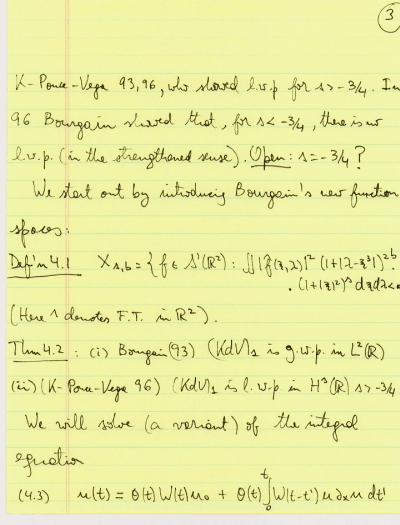 3
K-Ponce-Vega 93,96, who showed l.w.p for s>-3/4. In
96 Bourgain showed that, for s<-3/4, there is no
l.w.p. (in the strengthened sense). Open: s=-3/4?
We start out by introducing Bourgain's new function
spaces:
Def'n 4.1 X_{s,b} = {f ∈ S'(R²): ∬|f̂(ξ,λ)|² (1+|λ-ξ³|)^{2b}.
.(1+|ξ|²)^s dξdλ<∞
(Here ^ denotes F.T. in R²).
Thm 4.2: (i) Bourgain (93) (KdV)_1 is g.w.p. in L²(R)
(ii) (K-Ponce-Vega 96) (KdV)_1 is l.w.p in H^s(R) s>-3/4
We will solve (a variant) of the integral
equation
(4.3) u(t) = θ(t)W(t)u_0 + θ(t)∫_0^t W(t-t') u ∂_x u dt'